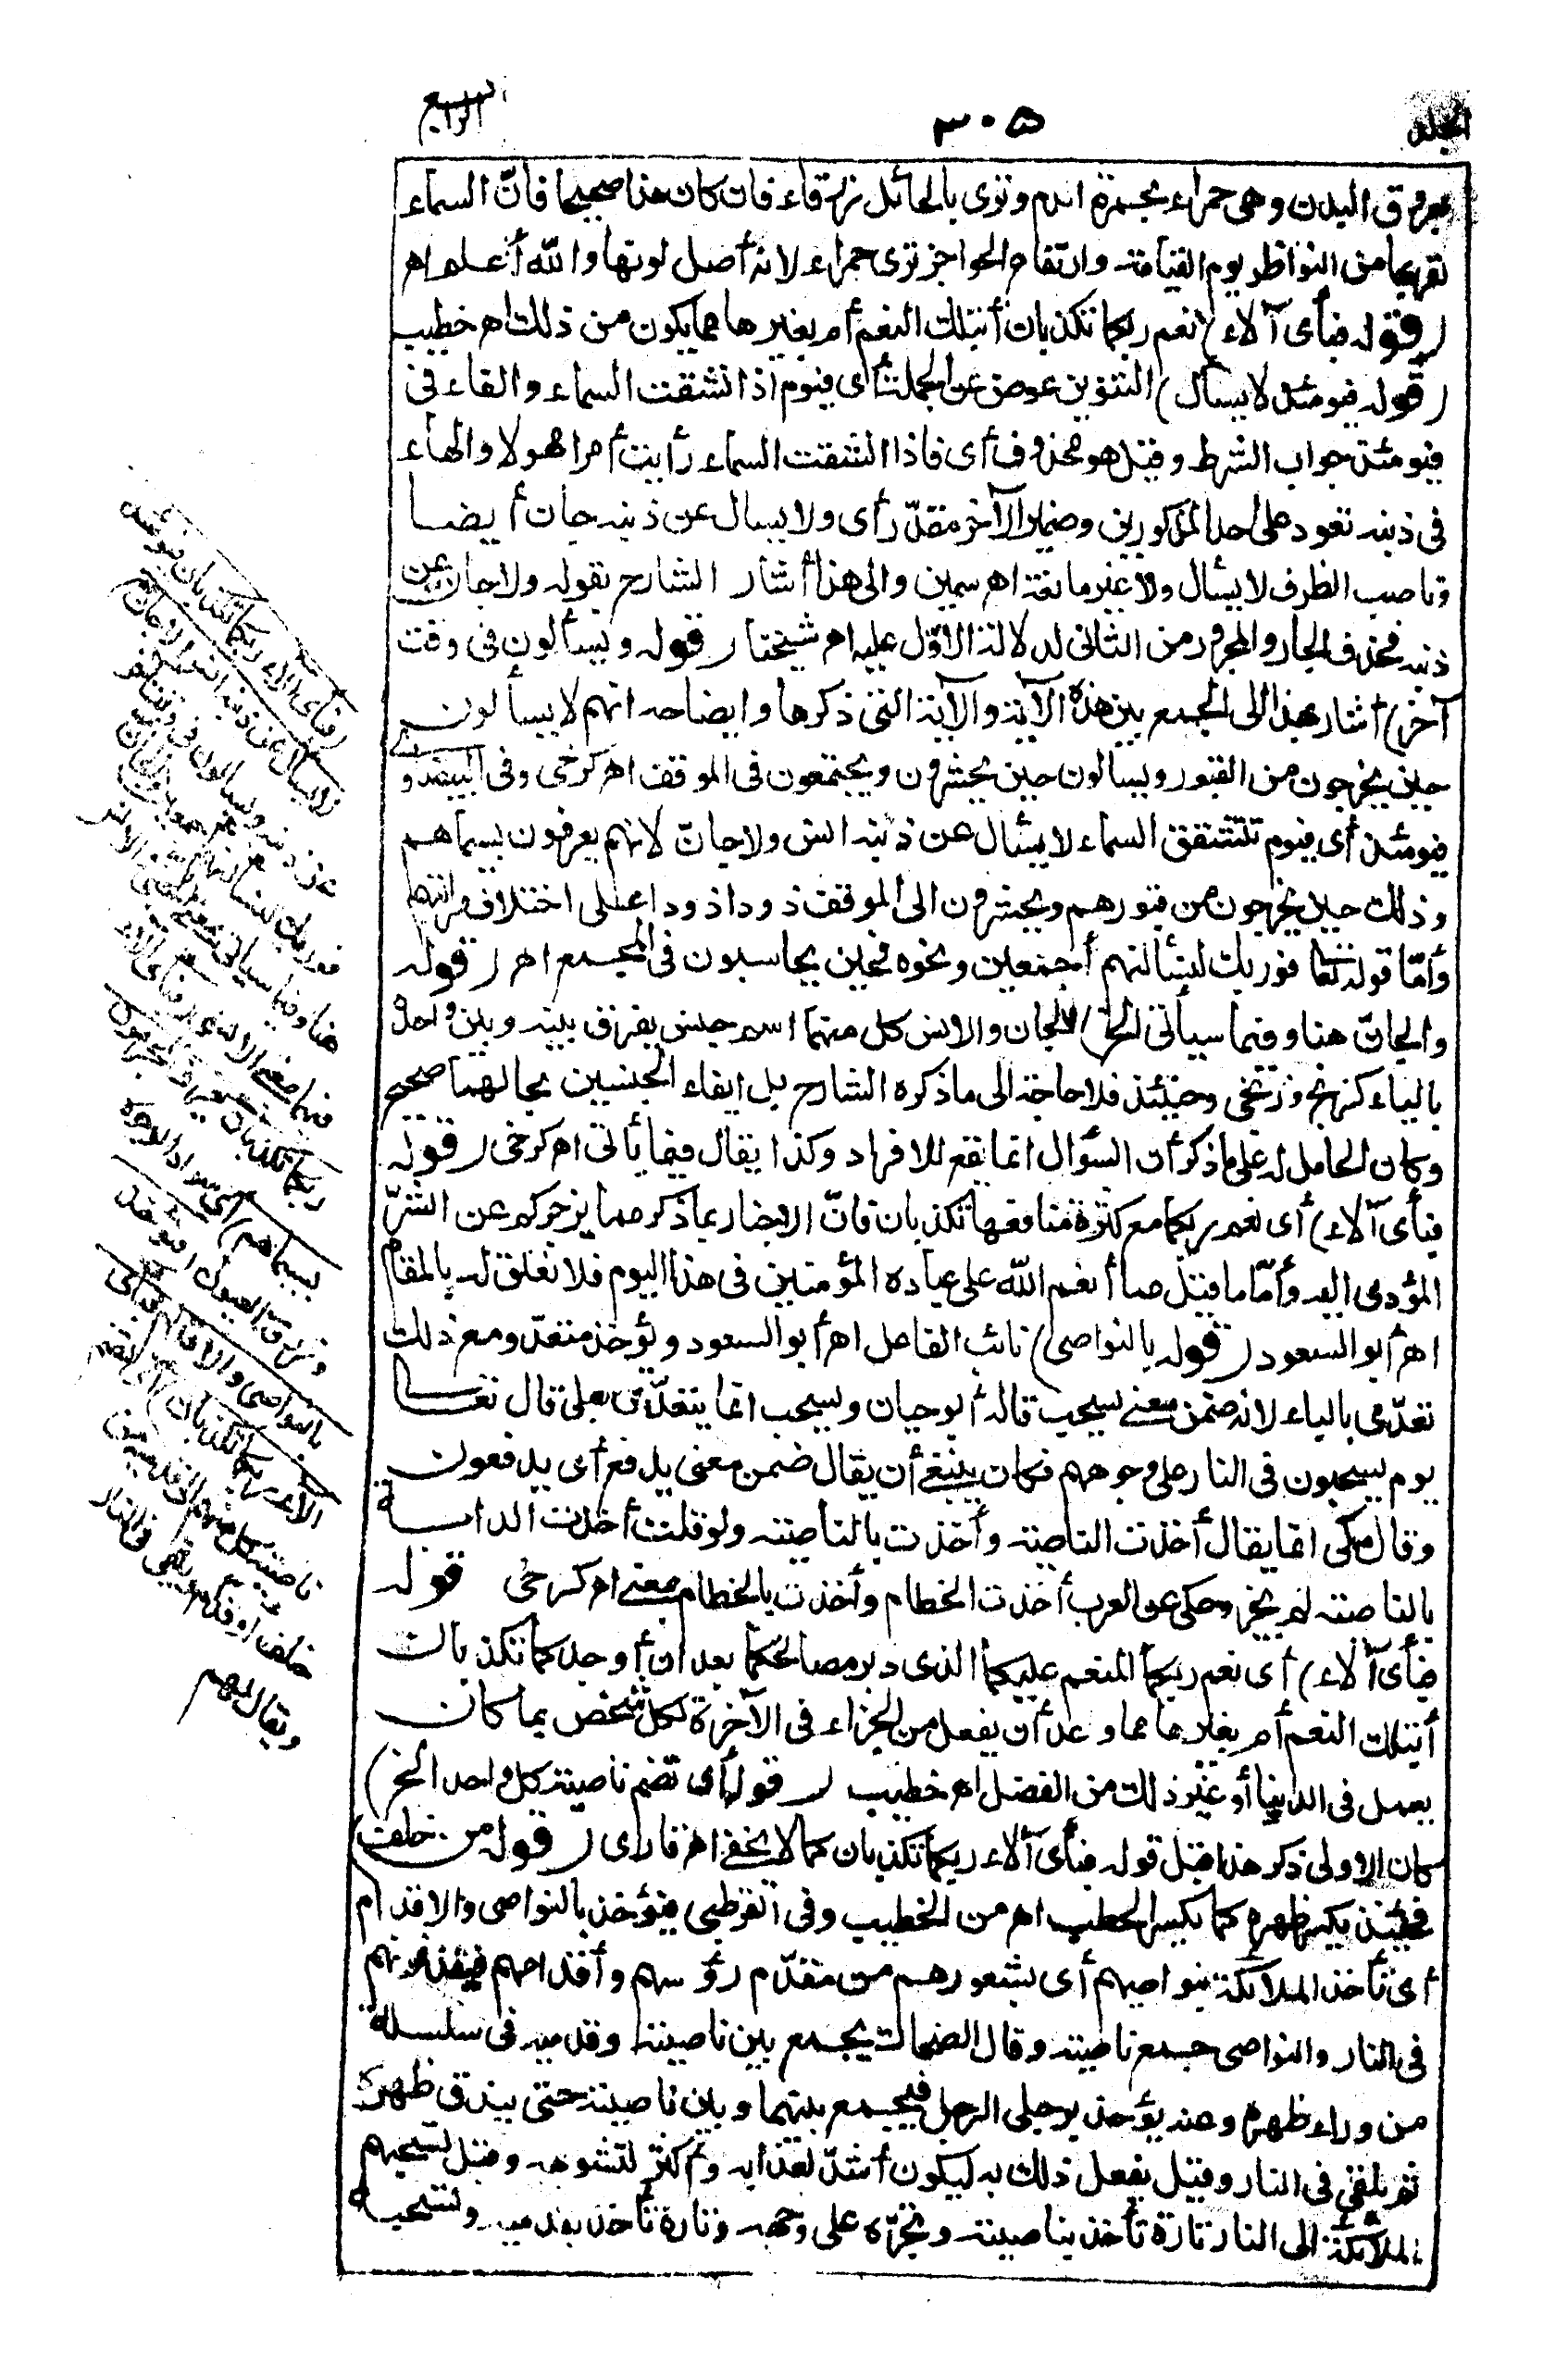 المجلد
٣٠٥
الرابع
بعروق البدن وهى حمراء بحمرة الدم وترى بالحائل زرقاء فان كان هذا صحيحا فانّ السماء
لقربها من النواظر يوم القيامة وارتفاع الحواجز ترى حمراء لانه أصل لونها والله أعلم اهـ
(قوله فبأى آلاء) نعم ربكما تكذبان أبتلك النعم أم بغيرها مما يكون من ذلك اهـ خطيب
(قوله فيومئذ لا يسأل) التنوين عوض عن الجملة أى فيوم اذ انشقت السماء والفاء فى
فيومئذ جواب الشرط وقيل هو محذوف أى فاذا انشقت السماء رأيت أمرا هولا والهاء
فى ذنبه تعود على أحد المذكورين وضمير الآخر مقدّر أى ولا يسأل عن ذنبه جان أيضا
وناصب الظرف لا يسأل ولا غير مانعة اهـ سمين والى هذا أشار الشارح بقوله ولا جان عن
ذنبه فحذف الجار والمجرور من الثانى لدلالة الاوّل عليه اهـ شيخنا (قوله ويسألون فى وقت
آخر) أشار بهذا الى الجمع بين هذه الآية والآية التى ذكرها وايضاحه انهم لا يسألون
حين يخرجون من القبور ويسألون حين يحشرون ويجتمعون فى الموقف اهـ كرخى وفى البيضاوى
فيومئذ أى فيوم تنشقق السماء لا يسأل عن ذنبه انس ولا جانّ لانهم يعرفون بسيماهم
وذلك حين يخرجون من قبورهم ويحشرون الى الموقف ذودا ذودا على اختلاف مراتبهم
وأمّا قوله تعالى فوربك لنسألنهم أجمعين ونحوه فحين يحاسبون فى المجمع اهـ (قوله
والجانّ هنا وفيما سيأتى الخ) الجان والانس كل منهما اسم جنس يفرق بينه وبين واحده
بالياء كزنج وزنجى وحينئذ فلا حاجة الى ما ذكره الشارح بل ابقاء الجنسين بحالهما صحيح
وكان الحامل له على ما ذكر أن السؤال انما يقع للافراد وكذا يقال فيما يأتى اهـ كرخى (قوله
فبأى آلاء) أى نعم ربكما مع كثرة منافعها تكذبان فانّ الاخبار بما ذكر مما يزجركم عن الشرّ
المؤدى اليه وأمّا ما قيل مما أنعم الله على عباده المؤمنين فى هذا اليوم فلا تعلق له بالمقام
اهـ أبو السعود (قوله بالنواصى) نائب الفاعل اهـ أبو السعود ويؤخذ متعدّ ومع ذلك
تعدّى بالباء لانه ضمن معنى يسحب قاله أبو حيان ويسحب انما يتعدّى بعلى قال تعالى
يوم يسحبون فى النار على وجوههم فكان ينبغى أن يقال ضمن معنى يدفع أى يدفعون
وقال مكى انما يقال أخذت الناصية وأخذت بالناصية ولو قلت أخذت الدابة
بالناصية لم يجز وحكى عن العرب أخذت الخطام وأخذت بالخطام بمعنى اهـ كرخى قوله
فبأى آلاء) أى نعم ربكما المنعم عليكما الذى دبر مصالحكما بعد أن أوجدكما تكذبان
أبتلك النعم أم بغيرها مما وعد أن يفعل من الجزاء فى الآخرة لكل شخص بما كان
يعمل فى الدنيا أو غير ذلك من الفضل اهـ خطيب (قوله أى تضم ناصية كل واحد الخ)
كان الاولى ذكر هذا قبل قوله فبأى آلاء ربكما تكذبان كما لا يخفى اهـ قارى (قوله من خلف)
فحينئذ يكسر ظهره كما يكسر الحطب اهـ من الخطيب وفى القرطبى فيؤخذ بالنواصى والاقدام
أى تأخذ الملائكة بنواصيهم أى بشعورهم من مقدّم رؤسهم وأقدامهم فيقذفونهم
فى النار والنواصى جمع ناصية وقال الضحاك يجمع بين ناصيته وقدميه فى سلسلة
من وراء ظهره وعنه يؤخذ برجلى الرجل فيجمع بينهما وبين ناصيته حتى يندق ظهره
ثم يلقى فى النار وقيل يفعل ذلك به ليكون أشدّ لعذابه وأكثر لتشويهه وقيل تسحبهم
الملائكة الى النار تارة تأخذ بناصيته وتجرّه على وجهه وتارة تأخذ بقدميه وتسحبه
(فبأى آلاء ربكما تكذبان فيومئذ
لا يسأل عن ذنبه انس ولا جان)
عن ذنبه ويسألون فى وقت آخر
فوربك لنسألنهم أجمعين والجان
هنا وفيما سيأتى بمعنى الجنى والانس
فيهما بمعنى الانسى (فبأى آلاء
ربكما تكذبان يعرف المجرمون
بسيماهم) أى سواد الوجوه
وزرقة العيون (فيؤخذ
بالنواصى والاقدام فبأى
آلاء ربكما تكذبان) أى تضم
ناصية كل منهم الى قدميه من
خلف أو قدام ويلقى فى النار
ويقال لهم